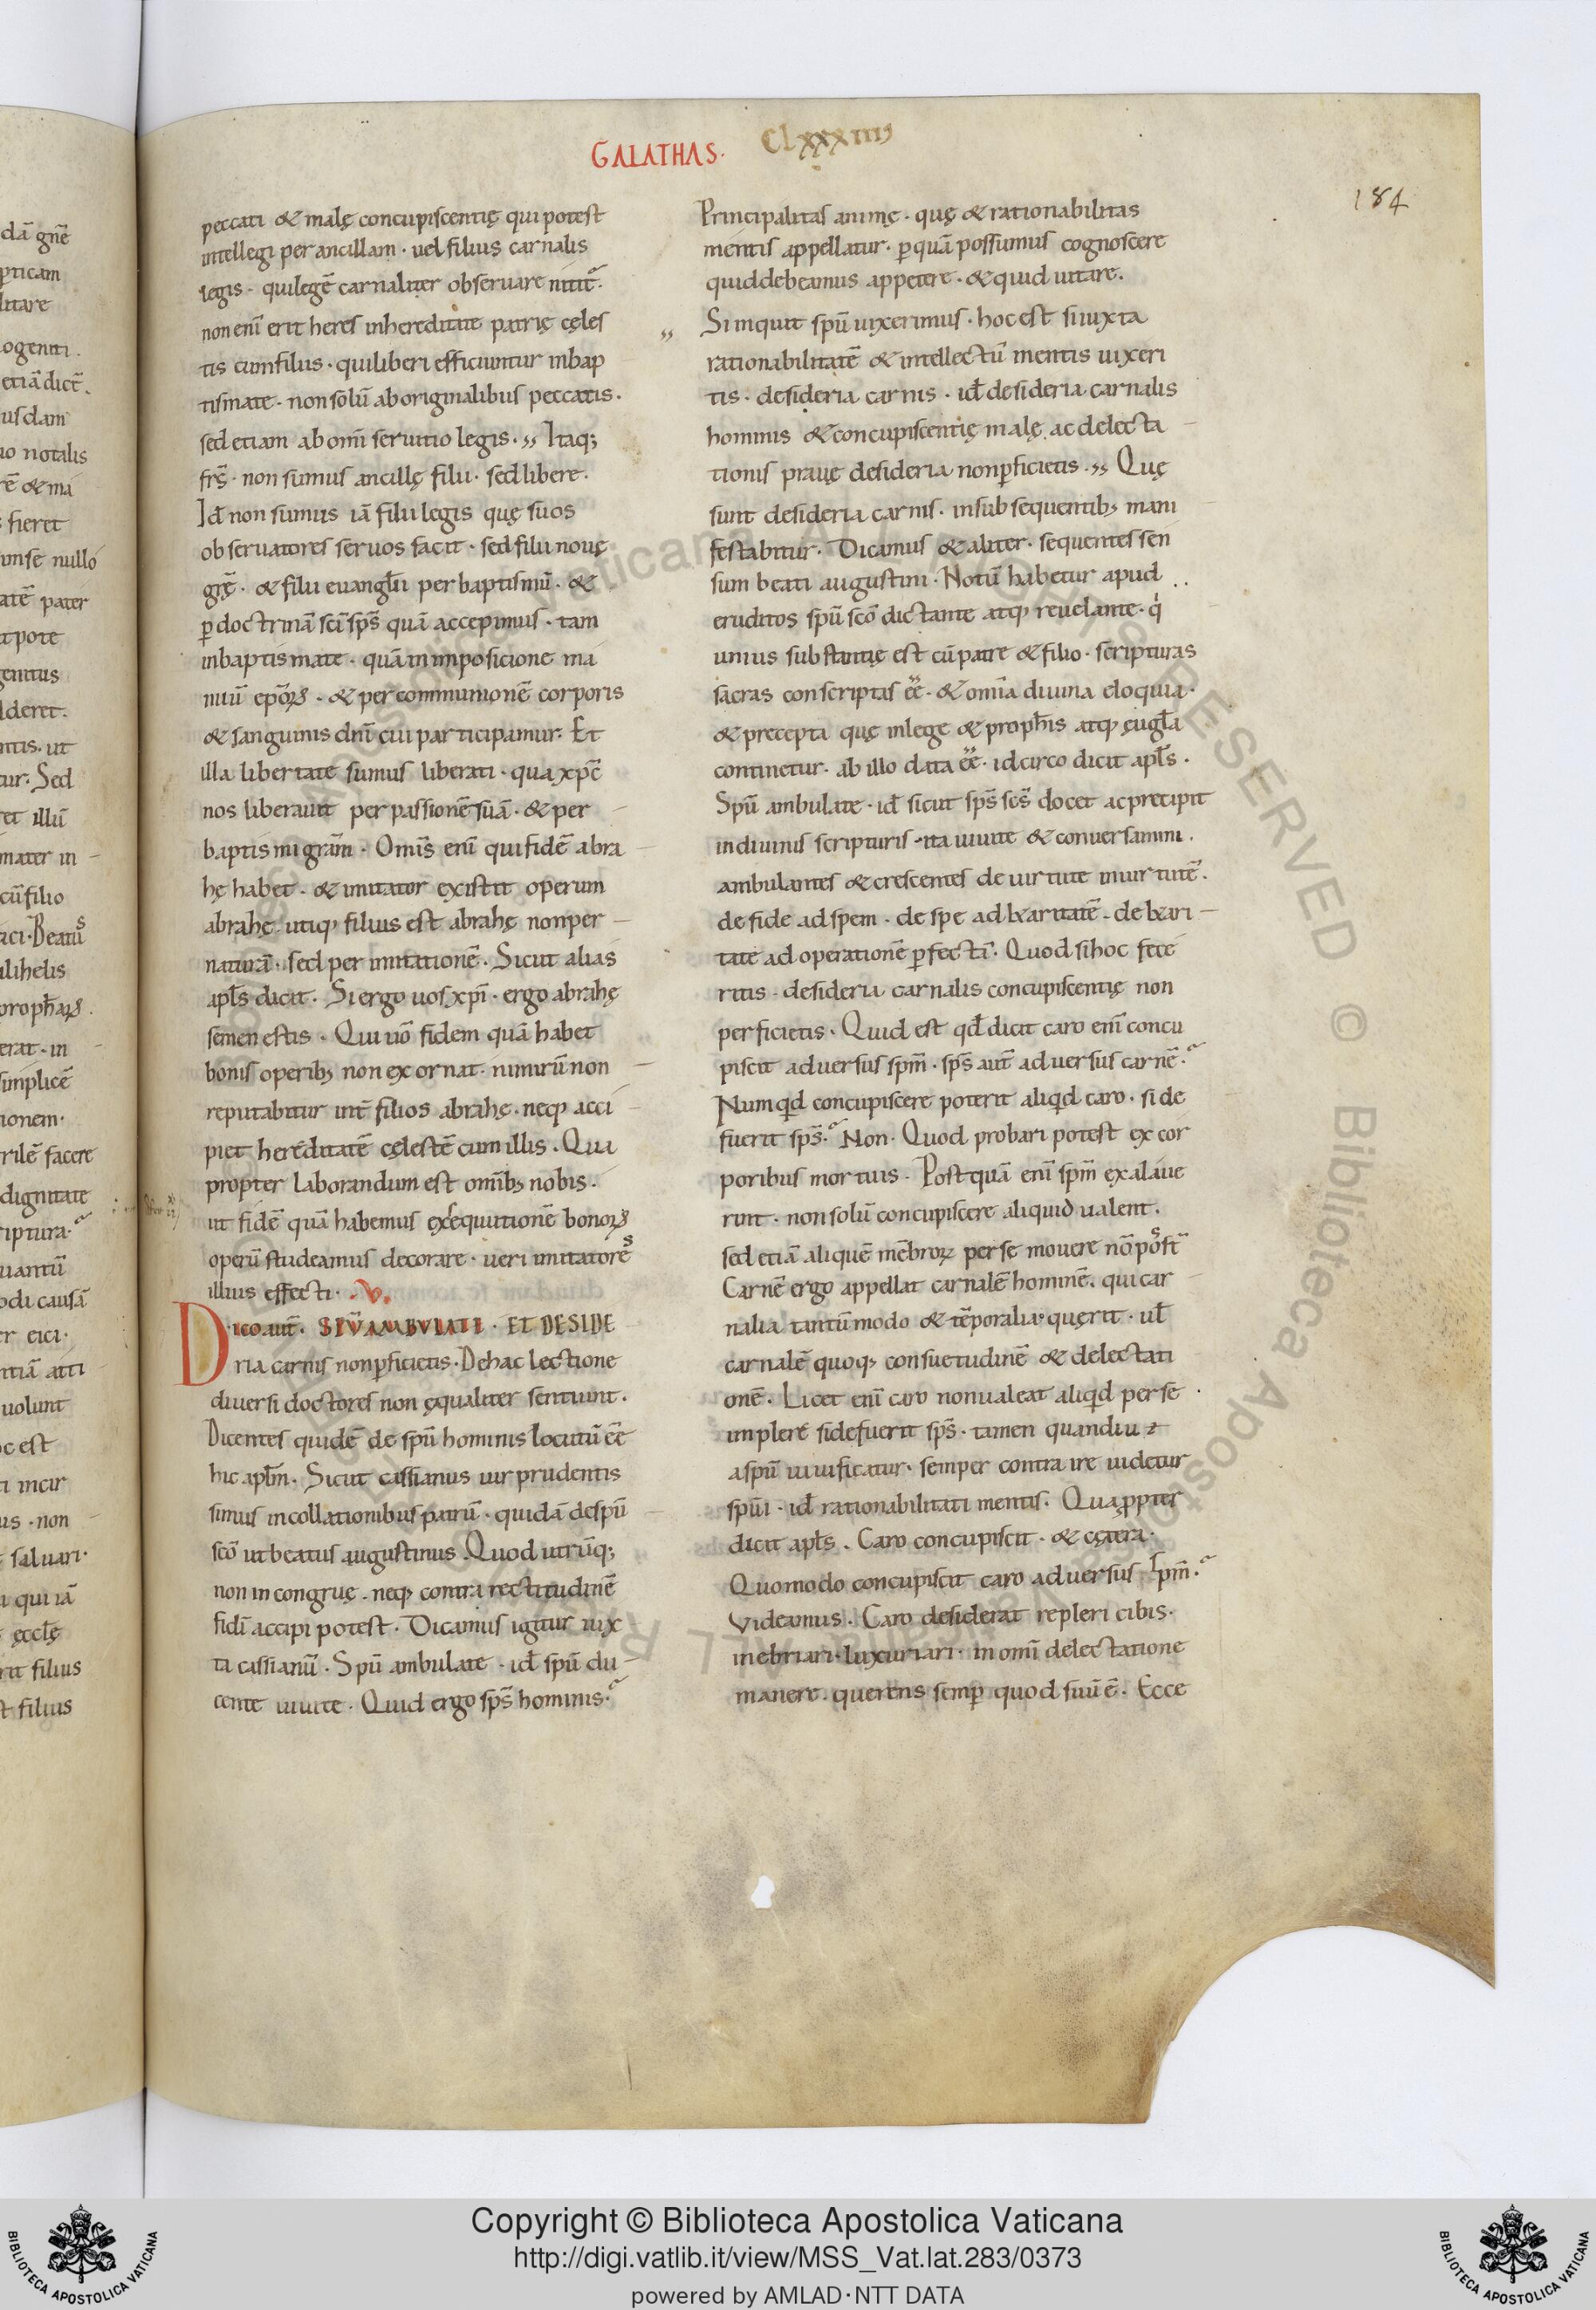 GALATHAS.
Clxxxiiii
184
peccati & malę concupiscentię qui potest
intellegi per ancillam · uel filius carnalis
legis · qui legē carnaliter obseruare nitit̄.
non enī erit heres in hereditate patrię cęles
tis cum filiis · qui liberi efficiuntur in bap
tismate · non solū ab originalibus peccatis.
sed etiam ab omī seruitio legis. ,, Itaq;
frs̄ · non sumus ancillę filii · sed liberę.
Id̄ non sumus iā filii legis quę suos
obseruatores seruos facit · sed filii nouę
grę̄ · & filii euanglii per baptismū · &
p doctrinā sci sps̄ quā accepimus · tam
in baptismate · quā in imposicione ma
nuū epōꝝ · & per communionē corporis
& sanguinis dnī cui participamur. Et
illa libertate sumus liberati · qua xpc̄
nos liberauit per passionē suā · & per
baptismi grām · Omīs enī qui fidē abra
hę habet · & imitator existit operum
abrahę · utiq; filius est abrahę non per
naturā · sed per imitationē. Sicut alias
apls̄ dicit. Si ergo uos xpī · ergo abrahę
semen estis · Qui uō fidem quā habet
bonis operib; non exornat · nimirū non
reputabitur int̄ filios abrahę · neq; acci
piet hereditatē cęlestē cum illis. Qua
propter laborandum est omīb; nobis.
ut fidē quā habemus exsequutionē bonoꝝ
operū studeamus decorare · ueri imitatores
illius effecti · V.
Dico aut̄. SPŪ AMBULATE · ET DESIDE
ria carnis non pficietis · De hac lectione
diuersi doctores non ęqualiter sentiunt.
Dicentes quidē de spū hominis locutū eē
hic aplm̄. Sicut cassianus uir prudentis
simus in collationibus patrū · quidā de spū
scō ut beatus augustinus. Quod utrūq;
non incongruę · neq; contra rectitudinē
fidī accipi potest. Dicamus igitur iux
ta cassianū. Spū ambulate · id̄ spū du
cente uiuite. Quid ergo sps̄ hominis.
Principalitas animę · quę & rationabilitas
mentis appellatur · p quā possumus cognoscere
quid debeamus appetere · & quid uitare.
,, Si inquit spū uixerimus · hoc est si iuxta
rationabilitatē & intellectū mentis uixeri
tis · desideria carnis · id̄ desideria carnalis
hominis & concupiscentię malę ac delecta
tionis prauę desideria non pficietis. ,, Quę
sunt desideria carnis · in subsequentib; mani
festabitur. Dicamus & aliter · sequentes sen
sum beati augustini. Notū habetur apud
eruditos spū scō dictante atq; reuelante · qi
unius substantię est cū patre & filio · scripturas
sacras conscriptas eē · & omīa diuina eloquia.
& precepta quę in lege & prophis atq; ęugla
continetur · ab illo data eē · idcirco dicit apls̄.
Spū ambulate · id̄ sicut sps̄ scs̄ docet ac precipit
in diuinis scripturis · ita uiuite & conuersamini.
ambulantes & crescentes de uirtute in uirtutē.
de fide ad spem · de spe ad karitatē · de kari
tate ad operationē pfectā. Quod si hoc fece
ritis · desideria carnalis concupiscentię non
perficietis. Quid est qd̄ dicit caro enī concu
piscit aduersus spm̄ · sps̄ aut̄ aduersus carnē.
Numqid concupiscere poterit aliqid caro · si de
fuerit sps̄. Non. Quod probari potest ex cor
poribus mortuis. Postquā enī spm̄ exalaue
runt · non solū concupiscere aliquid ualent.
sed etiā aliquē mēbroꝝ per se mouere nō post̄
Carnē ergo appellat carnalē hominē · qui car
nalia tantūmodo & tēporalia quęrit · ul̄
carnalē quoq; consuetudinē & delectati
onē. Licet enī caro non ualeat aliqid per se
implere si defuerit sps̄ · tamen quandiu
a spū uiuificatur · semper contra ire uidetur
spūi · id̄ rationabilitati mentis. Qua ppter
dicit apls̄. Caro concupiscit · & cętera.
Quomodo concupiscit caro aduersus spm̄.
Videamus. Caro desiderat repleri cibis.
inebriari · luxuriari · in omī delectatione
manere · querens semp quod suū ē. Ecce
Copyright © Biblioteca Apostolica Vaticana
http://digi.vatlib.it/view/MSS_Vat.lat.283/0373
powered by AMLAD·NTT DATA
BIBLIOTECA APOSTOLICA VATICANA
BIBLIOTECA APOSTOLICA VATICANA